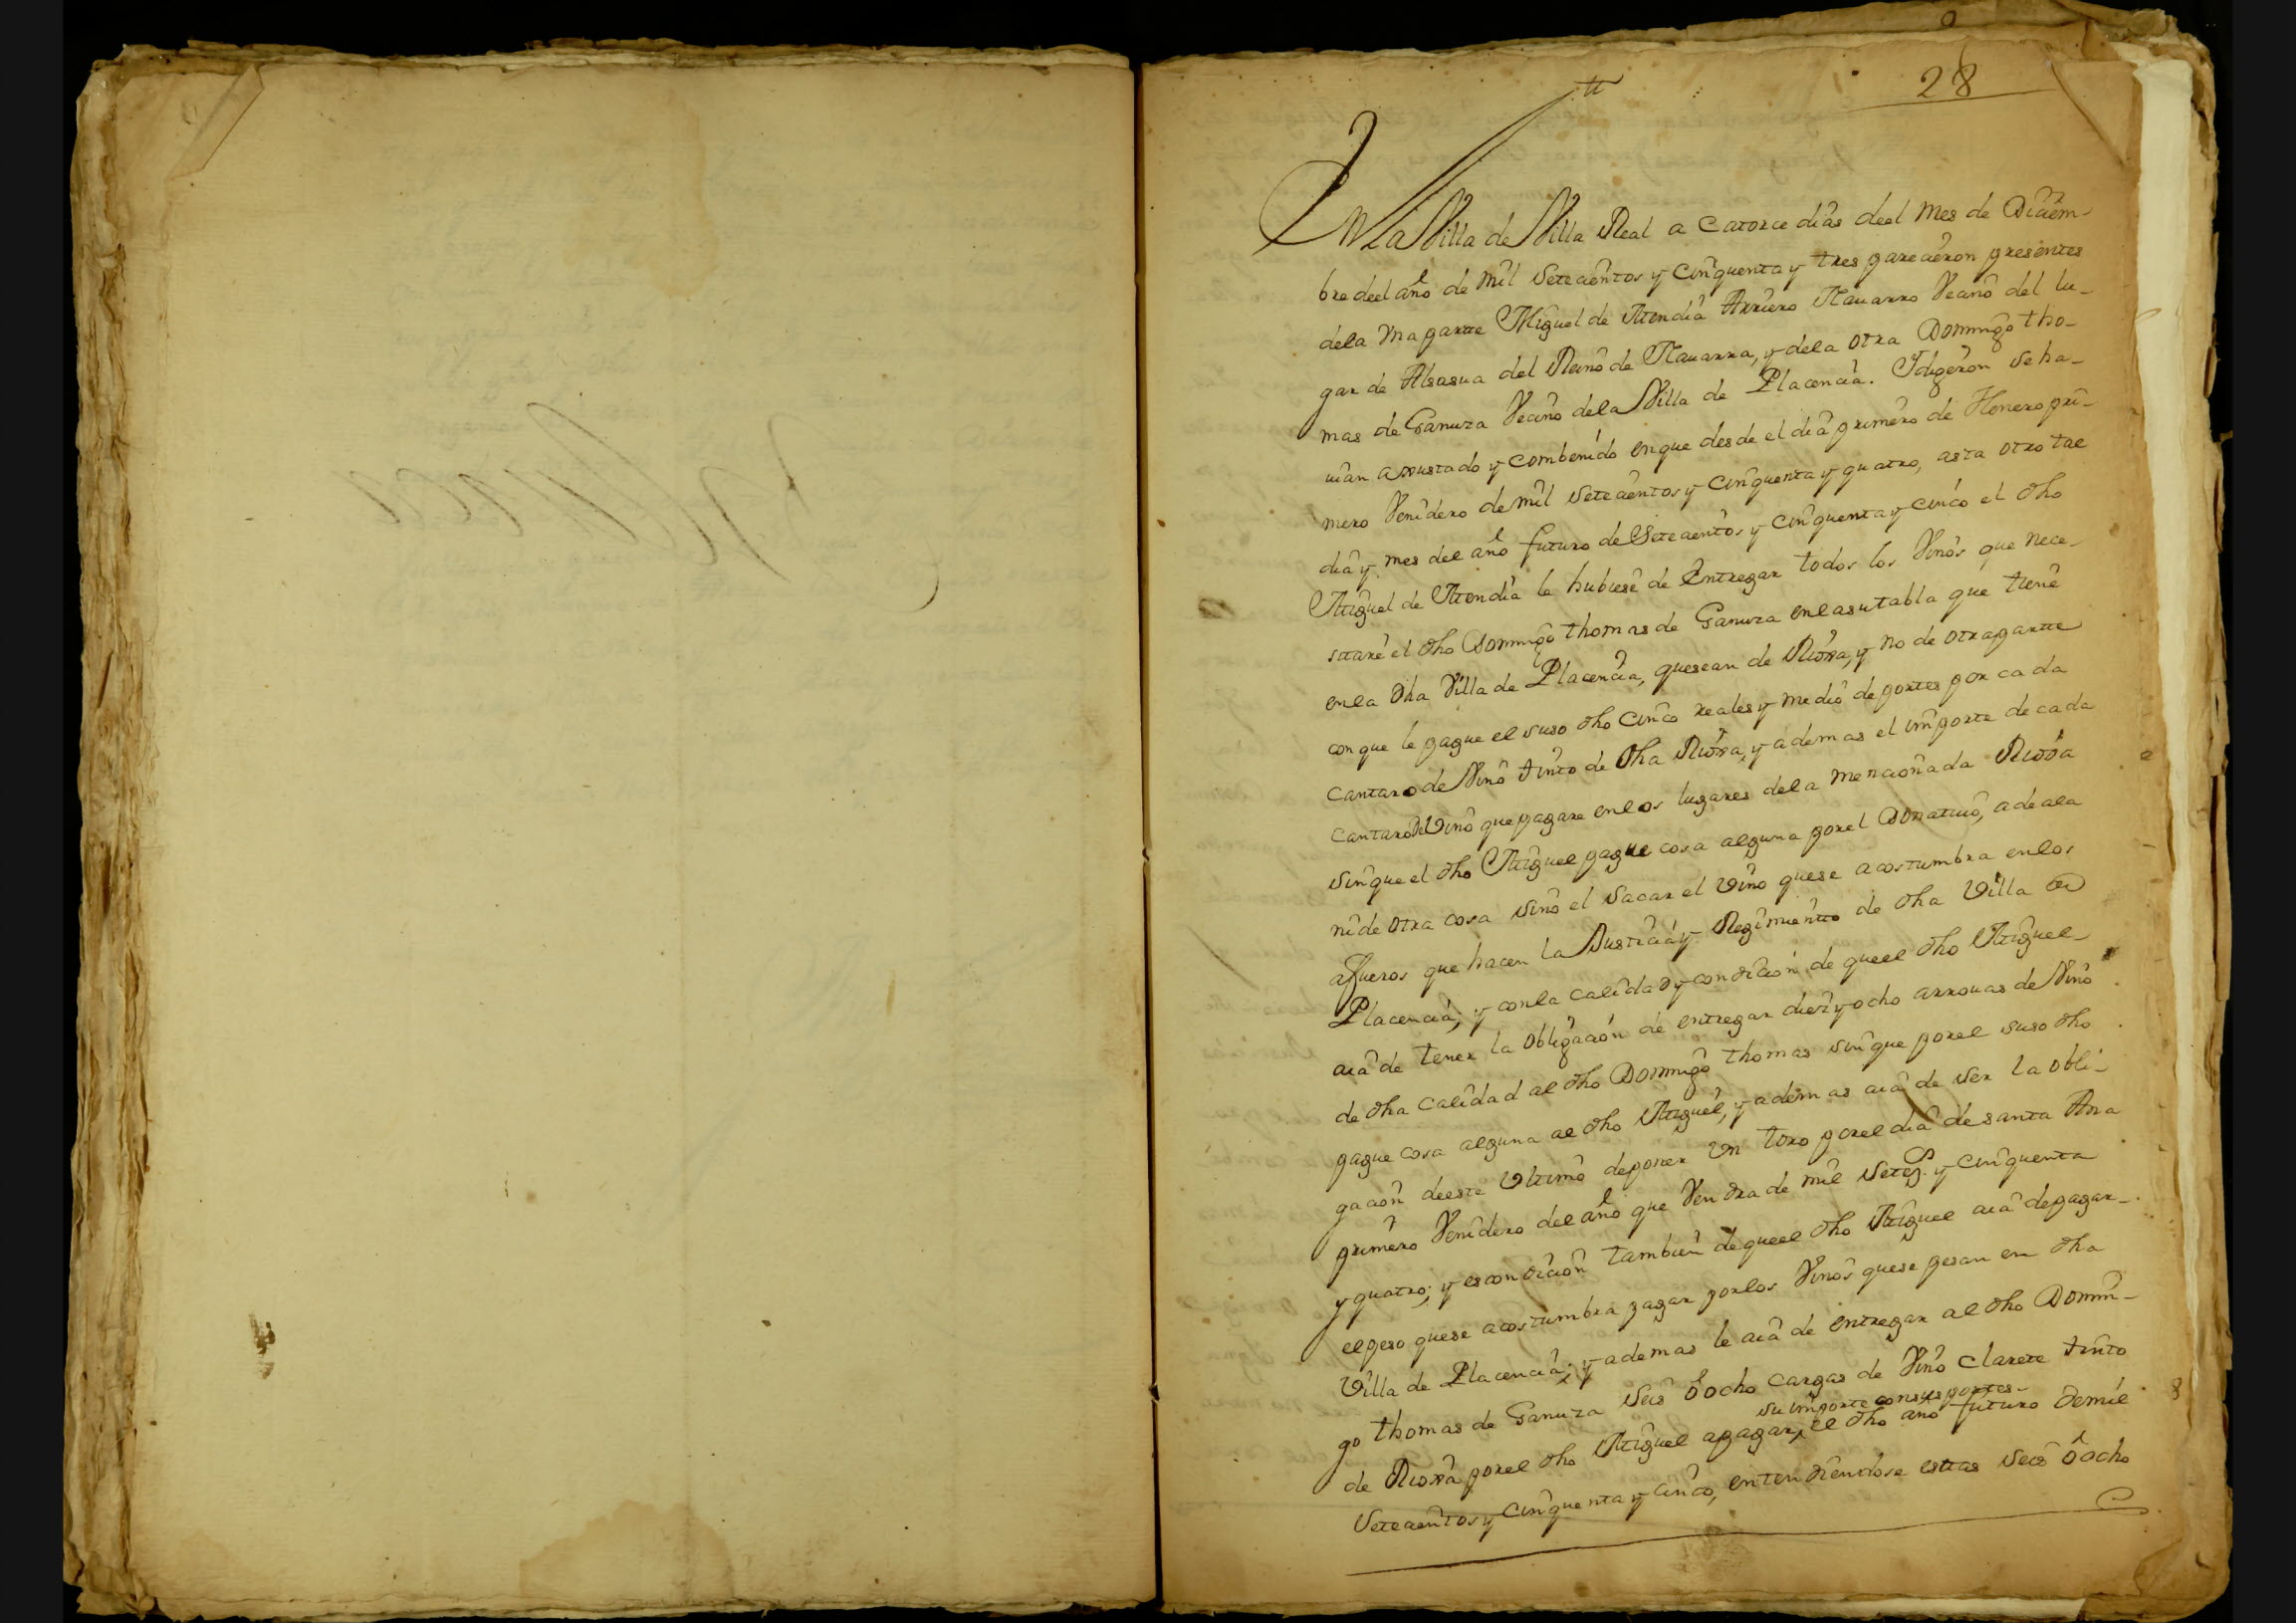 28
En La Villa de Villa Real a catorce dias deel mes de Diciem-
bre deel año de mil setecientos y cinquenta y tres parecieron presentes
dela una partte Miguel de Atendia Arriero Nauarro Vecino del lu-
gar de Alsasua del Reino de Nauarra, y dela otra Domingo tho-
mas de Ganuza Vecino dela Villa de Placencia. Y digeron se ha-
uian ajustado y combenido en que desde el dia primero de Henero pri-
mero Venidero de mil setecientos y cinquenta y quatro, asta otro tal
dia y mes del año futuro de setecientos y cinquenta y cinco el dho
Miguel de Atendia le hubiese de Entregar todos los Vinos que nece-
sitare el dho Domingo thomas de Ganuza en la su tabla que tiene
en la dha Villa de Placencia, que sean de Rioxa, y no de otra partte
con que le pague el suso dho cinco reales y medio de portes por cada
cantaro de Vino tinto de dha Rioxa, y ademas el importe de cada
cantaro de Vino que pagare en los lugares dela mencionada Rioxa
sin que el dho Miguel pague cosa alguna por el Donativo, adeala
ni de otra cosa sino el sacar el vino que se acostumbra en los
afueros que hacen la Justicia y Regimiento de dha Villa de
Placencia; y con la calidad y condicion de que el dho Miguel
aia de tener la obligacion de entregar diez y ocho arrouas de Vino
de dha calidad al dho Domingo thomas sin que por el suso dho
pague cosa alguna al dho Miguel, y ademas aia de ser la obli-
gacion de este ultimo de poner un toro por el dia de santa Ana
primero Venidero del año que Vendra de mil setes. y cinquenta
y quatro; y es condicion tambien de que el dho Miguel aia de pagar
el peso que se acostumbra pagar por los Vinos que se pesan en dha
Villa de Placencia; y ademas le aia de entregar al dho Domin-
go thomas de Ganuza seis ó ocho cargas de Vino clarete tinto
su importe con sus portes
de Rioxa por el dho Miguel a pagar, el dho año futuro de mil
setecientos y cinquenta y cinco, entendiendose esttas seis ó ocho